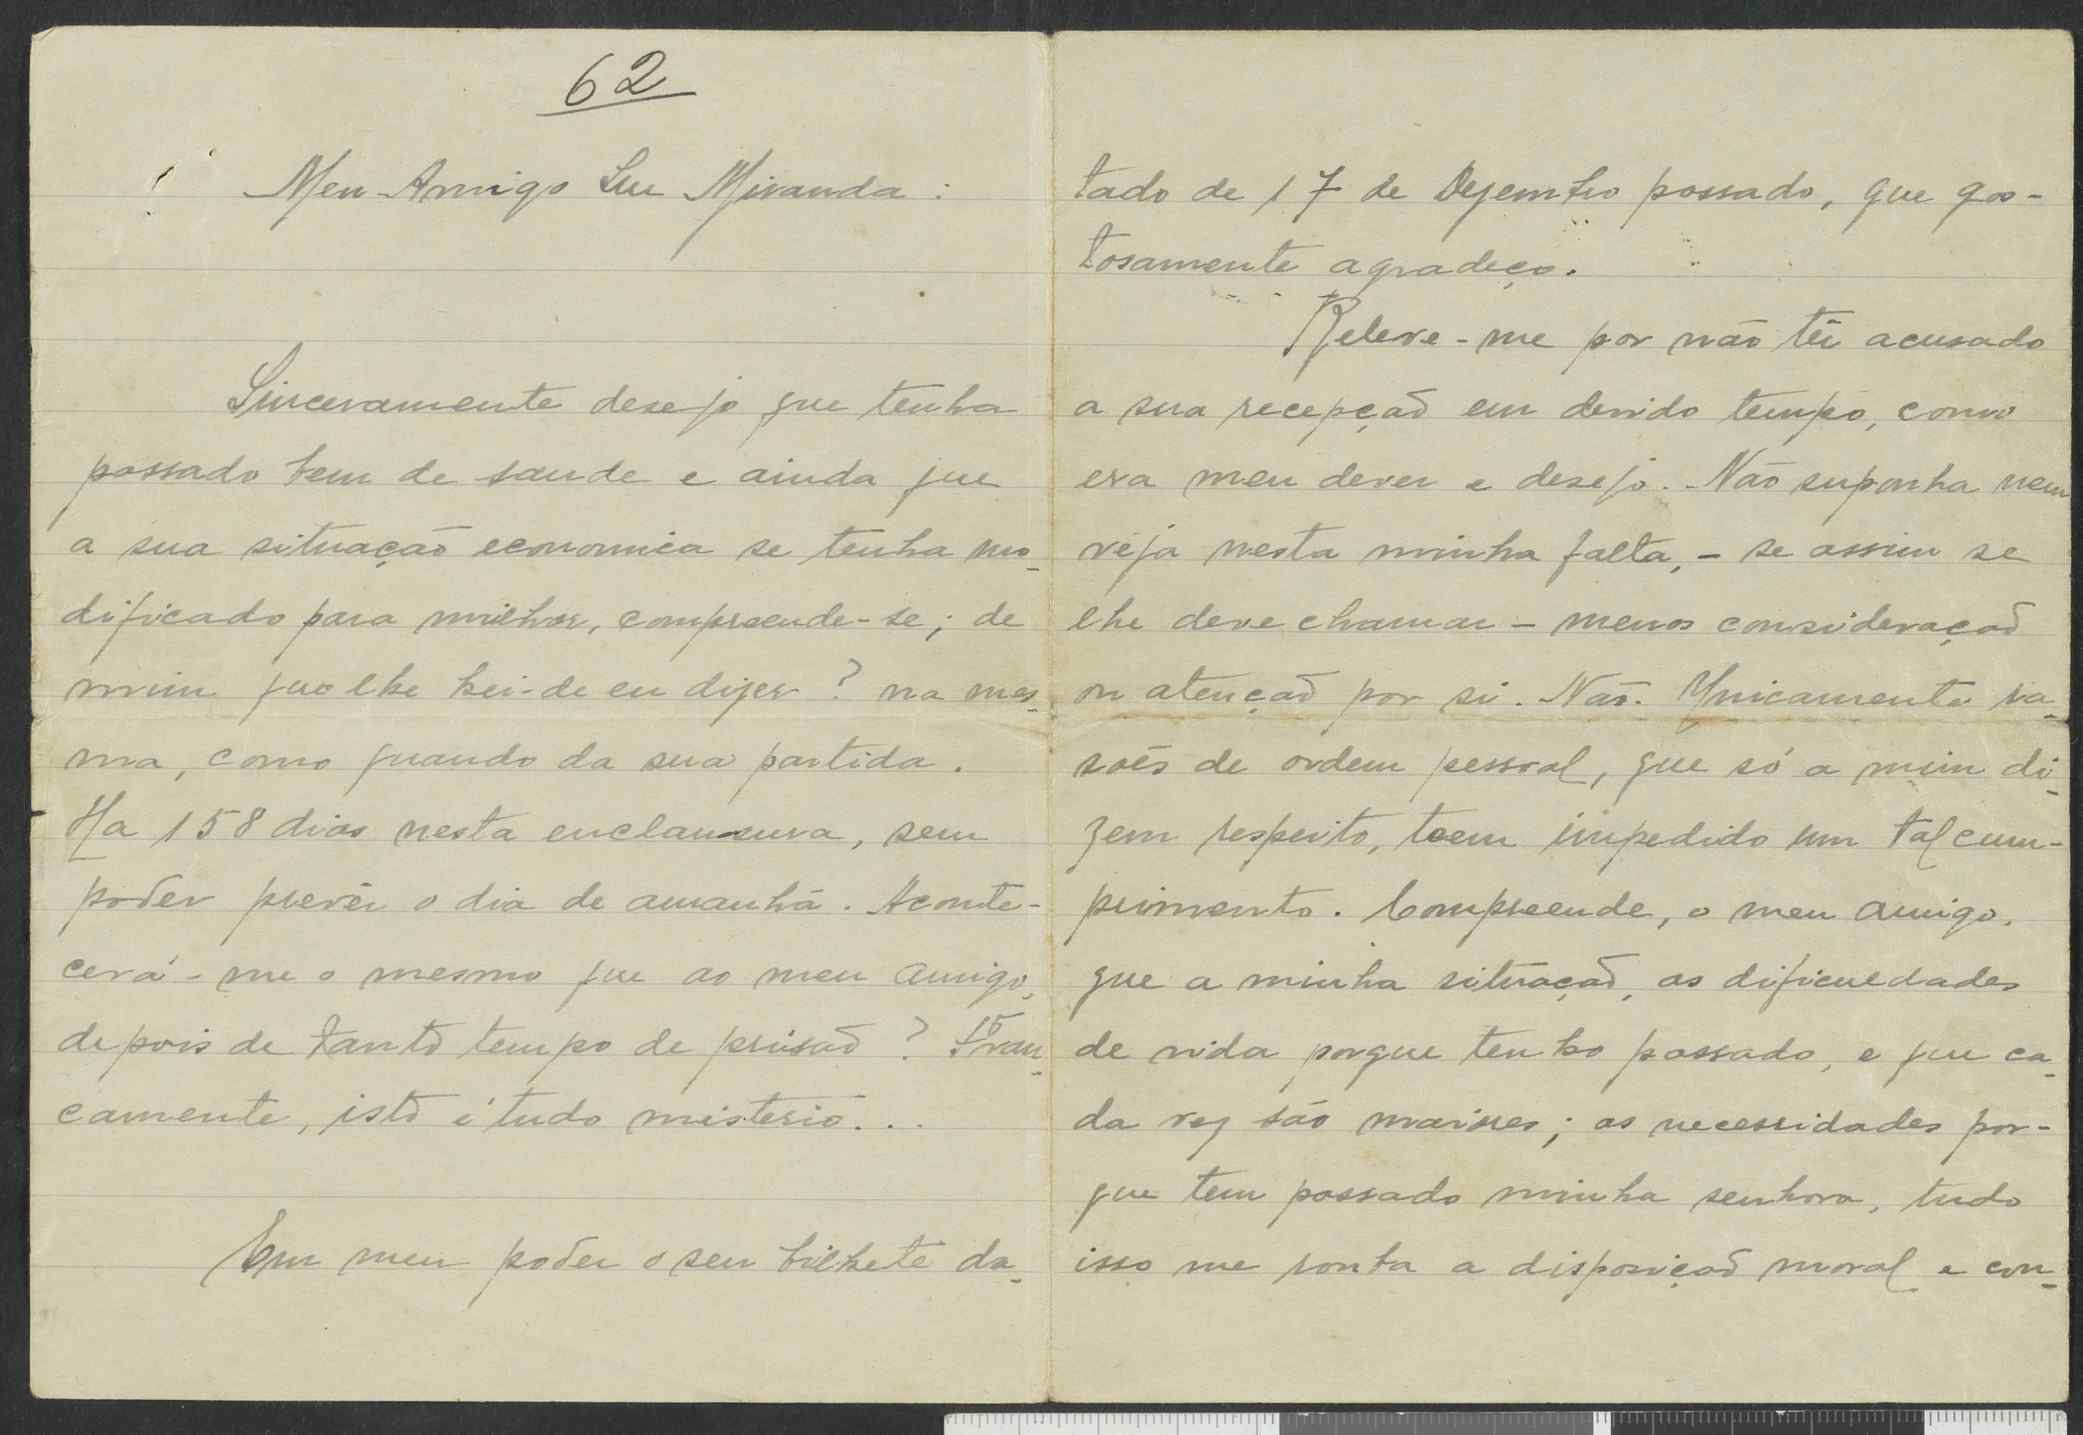 62
Meu Amigo Snr Miranda :
Sinceramente desejo que tenha
passado bem de saude e ainda que
a sua situação economica se tenha mo-
dificado para milhor, compreende-se; de
mim que lhe hei-de eu dizer ? na mes-
ma, como quando da sua partida.
Ha 158 dias nesta enclausura, sem
poder prevêr o dia de amanhã. Aconte-
cerá-me o mesmo que ao meu amigo,
depois de tanto tempo de prisão ? Fran-
camente, isto é tudo misterio...
Em meu poder o seu bilhete da-
tado de 17 de Dezembro passado, que gos-
tosamente agradeço.
Releve-me por não têr acusado
a sua recepção em devido tempo, como
era meu dever e desejo. Não suponha nem
veja nesta minha falta, - se assim se
lhe deve chamar - menos consideração
ou atenção por si. Não. Unicamente ra-
zões de ordem pessoal, que só a mim di-
zem respeito, teem impedido um tal cum-
primento. Compreende, o meu amigo,
que a minha situação, as dificuldades
de vida porque tenho passado, e que ca-
da vez são maiores; as necessidades por-
que tem passado minha senhora, tudo
isso me rouba a disposição moral e con-